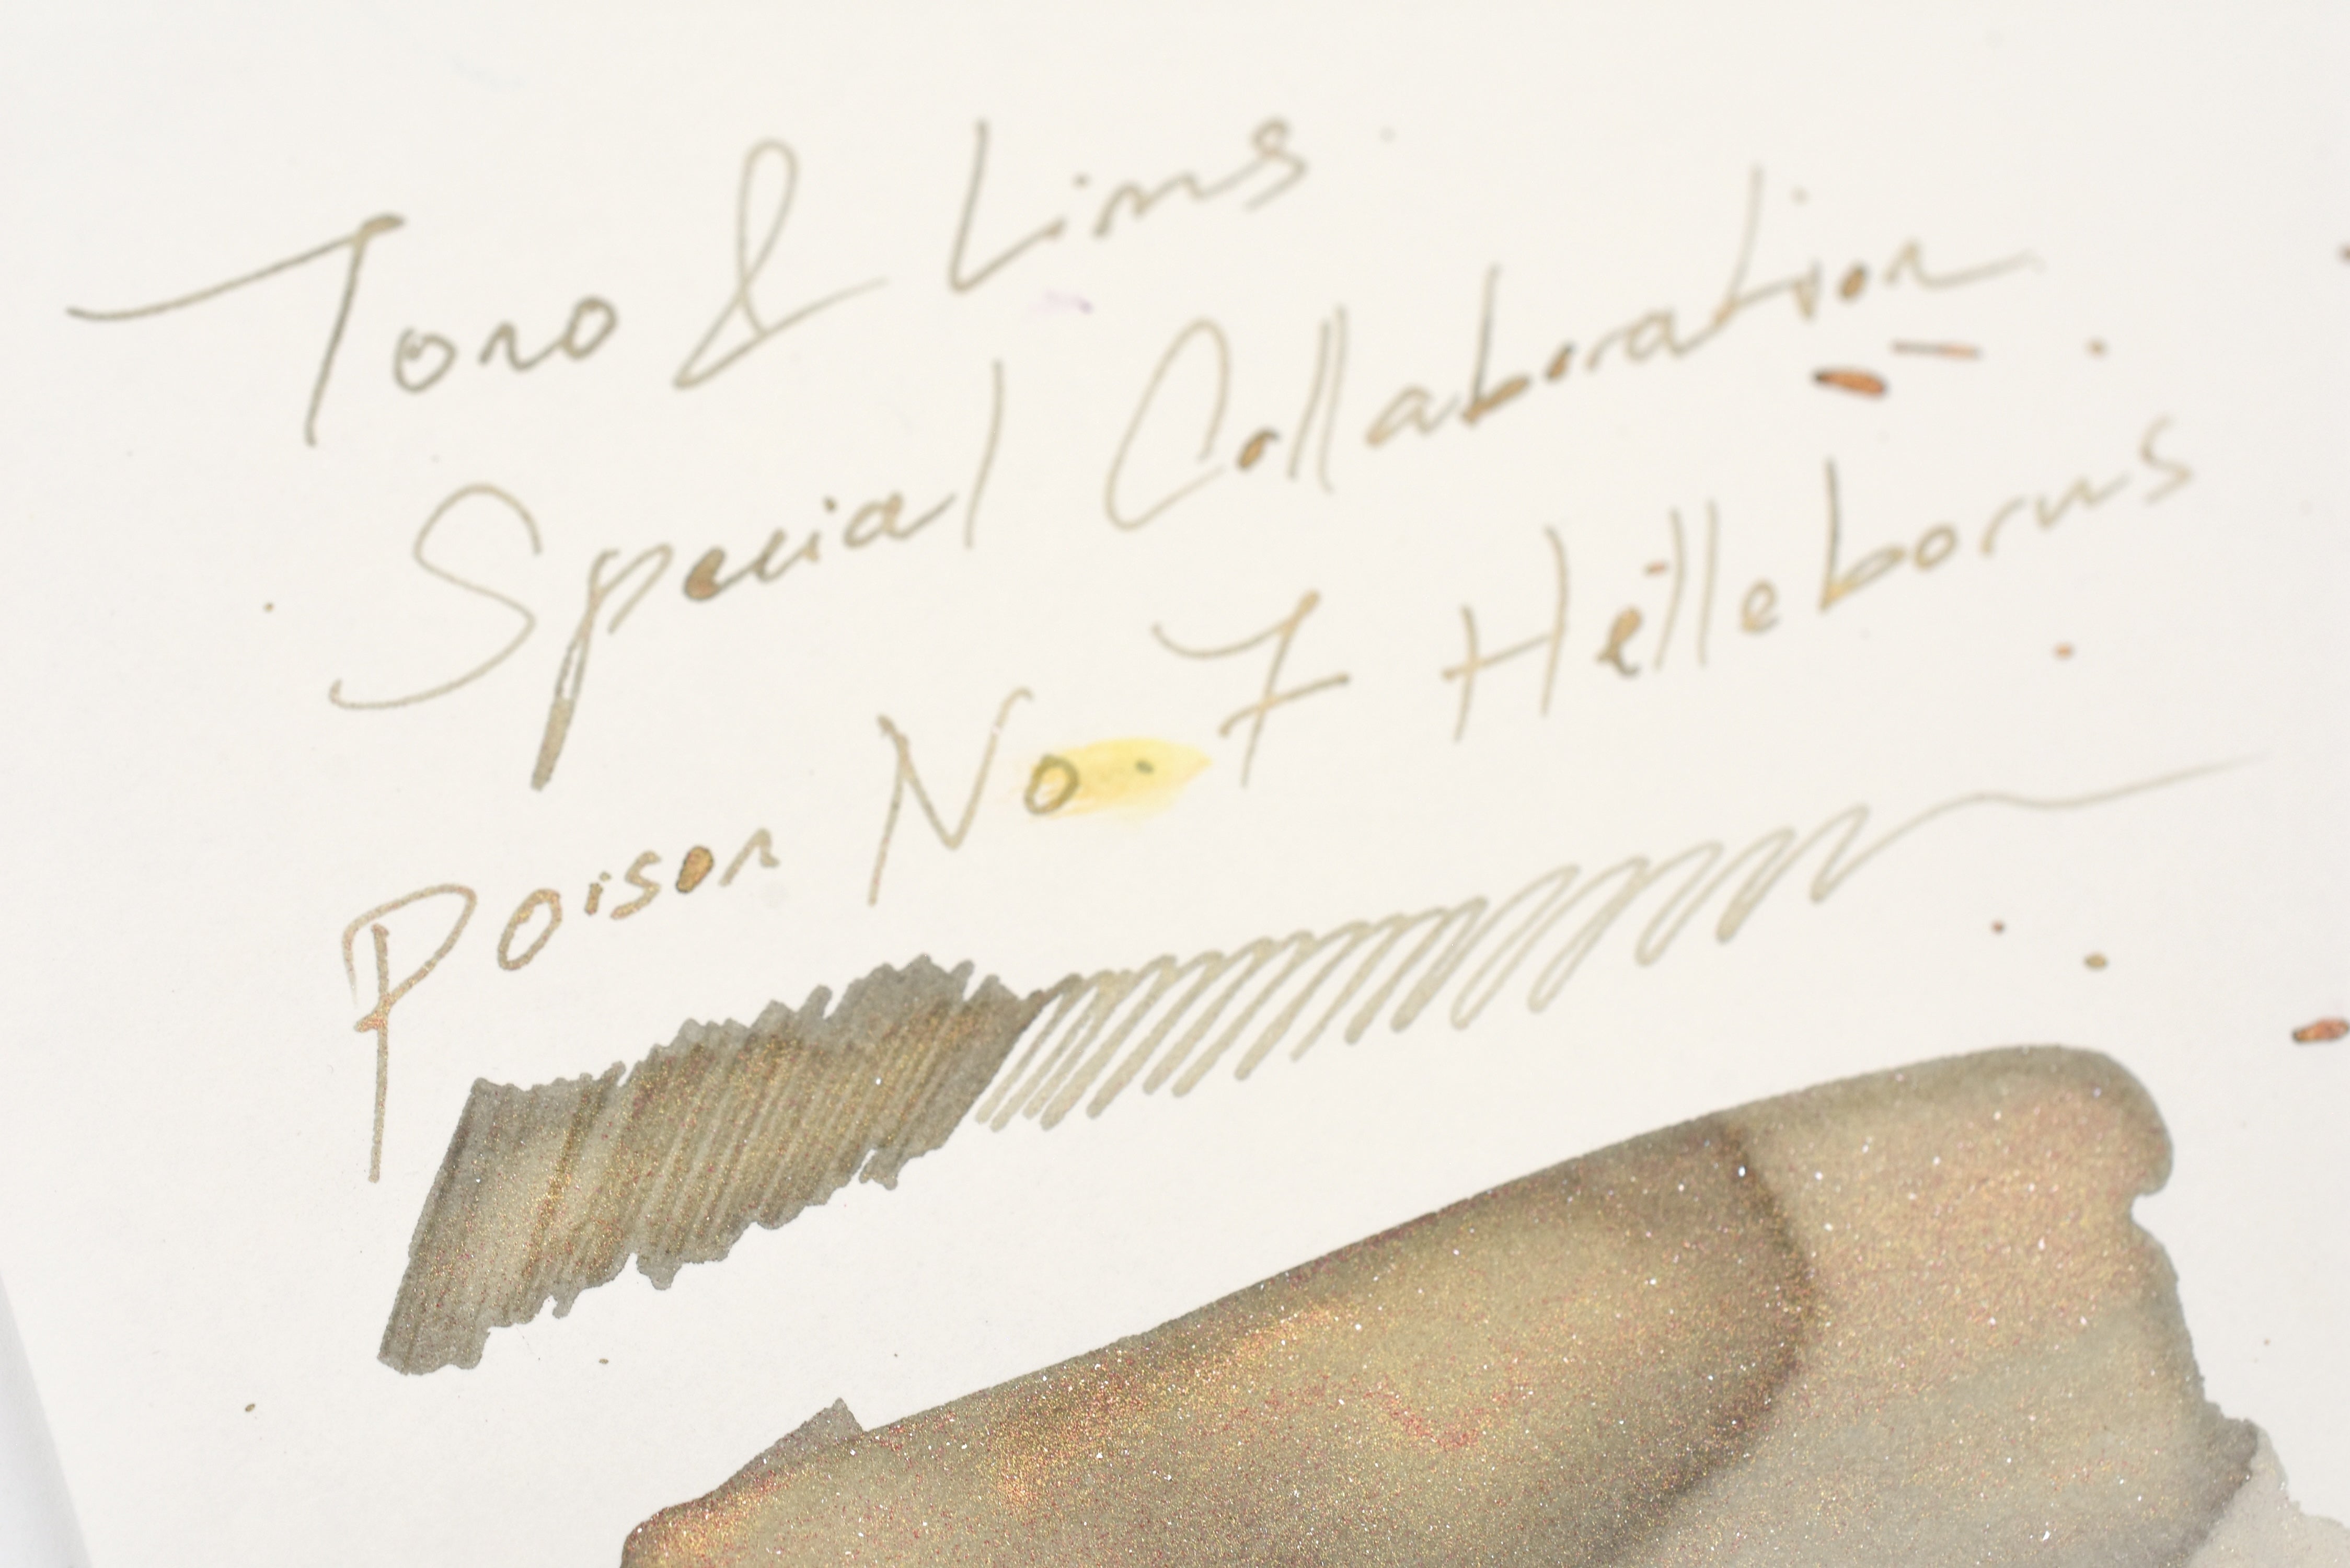 Tono & Lims
Special Collaboration
Poison No. 7 Helleborus